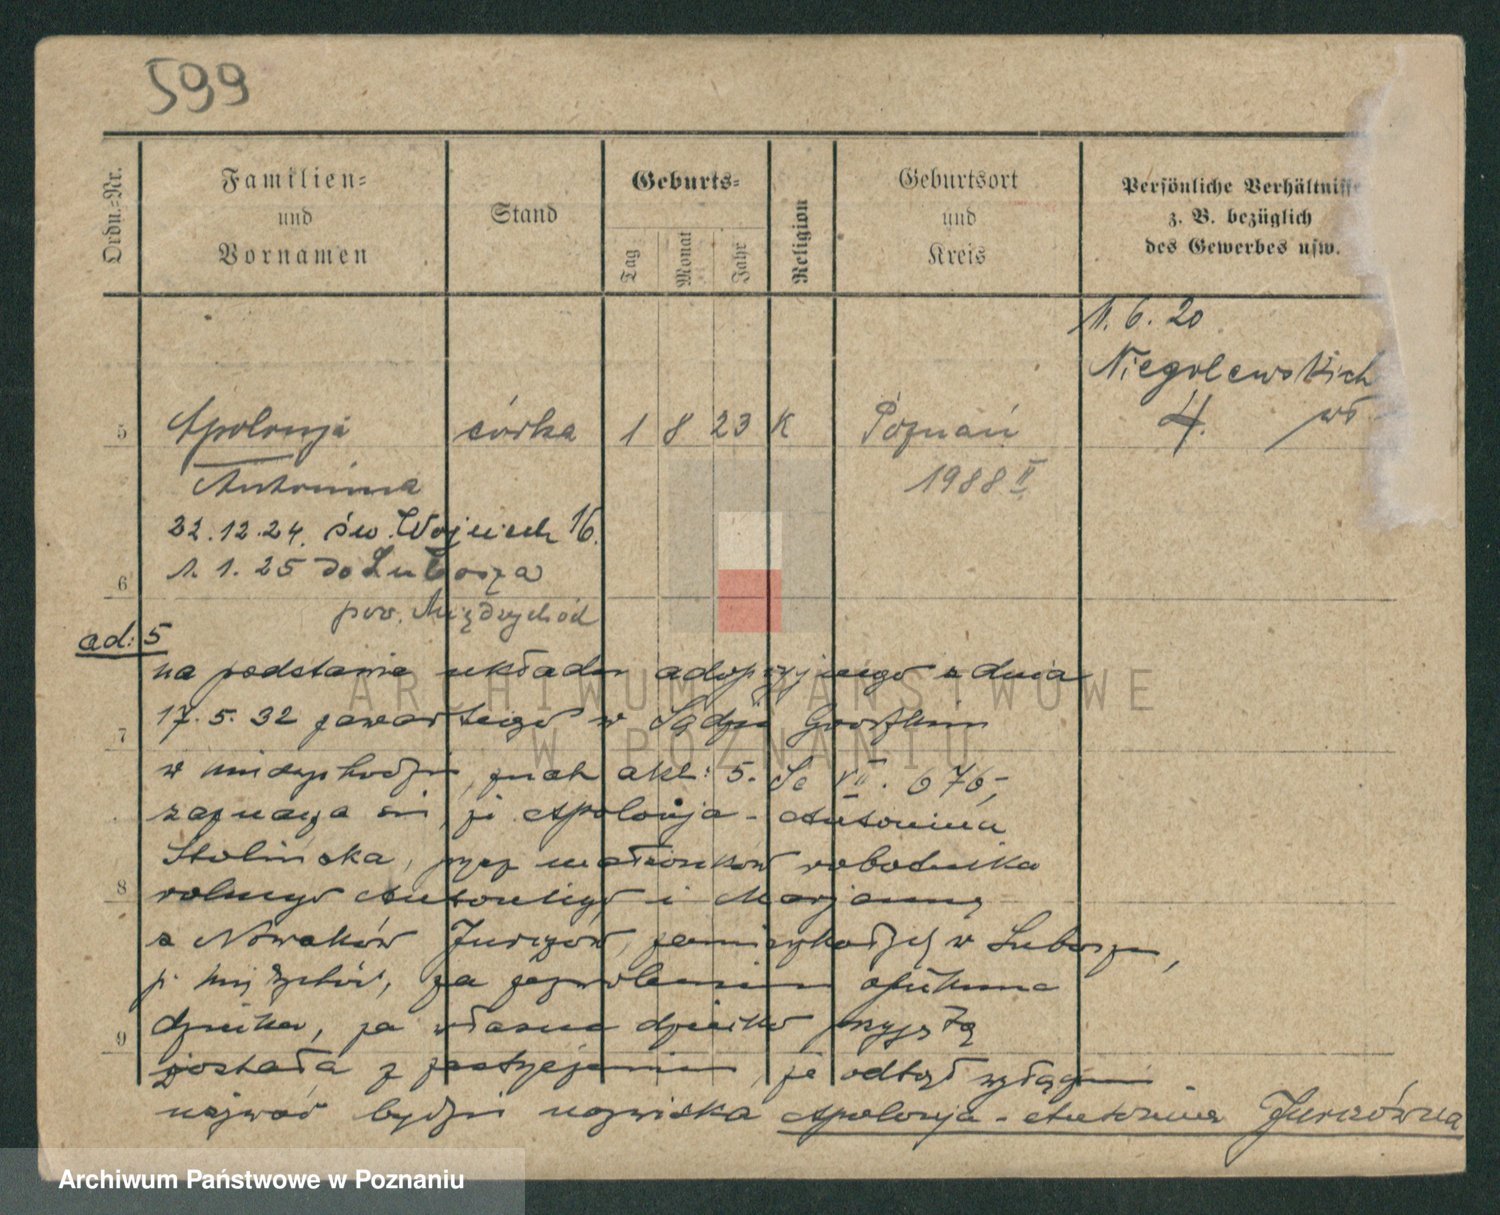 599
Ordn.-Nr.
Familien-
und
Vornamen
Stand
Geburts-
Tag
Monat
Jahr
Religion
Geburtsort
und
Kreis
Persönliche Verhältnisse
z. B. bezüglich
des Gewerbes usw.
1. 6. 20
Niegolewskich
4.
5 Apolonja córka 1 8 23 K Poznań
Antonina 1988 II
22.12.24. św. Wojciech 16.
6 1. 1. 25 do Lubosza
pow. Międzychód
ad: 5
na podstawie układu adopcyjnego z dnia
17.5.32 zawartego w Sądzie Grodzkim
7
w Międzychodzie, znak akt: 5. VII. 676,
zaznacza się, że Apolonja - Antonina
Stolińska, przez małżonków robotnika
8
rolnego Antoniego i Marjanny
z Nowaków Jurczów, zamieszkałych w Luboszu,
p. za zezwoleniem opiekuna
dziecka, za własne dziecko przyjętą
9
została z zastrzeżeniem, że odtąd
używać będzie nazwiska Apolonja - Antonina Jurczówna
ARCHIWUM PAŃSTWOWE
W POZNANIU
Archiwum Państwowe w Poznaniu